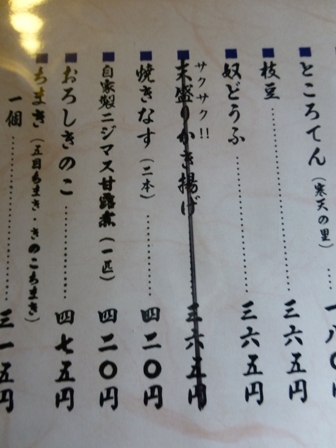 ところてん（寒天の里）………一八〇円
枝豆………三六五円
奴どうふ………三六五円
サクサク!!
末盛りかき揚げ 三六五円
焼きなす（二本）………四二〇円
自家製ニジマス甘露煮（一匹） 四二〇円
おろしきのこ………四七五円
ちまき（五目ちまき・きのこちまき）
一個………三一五円